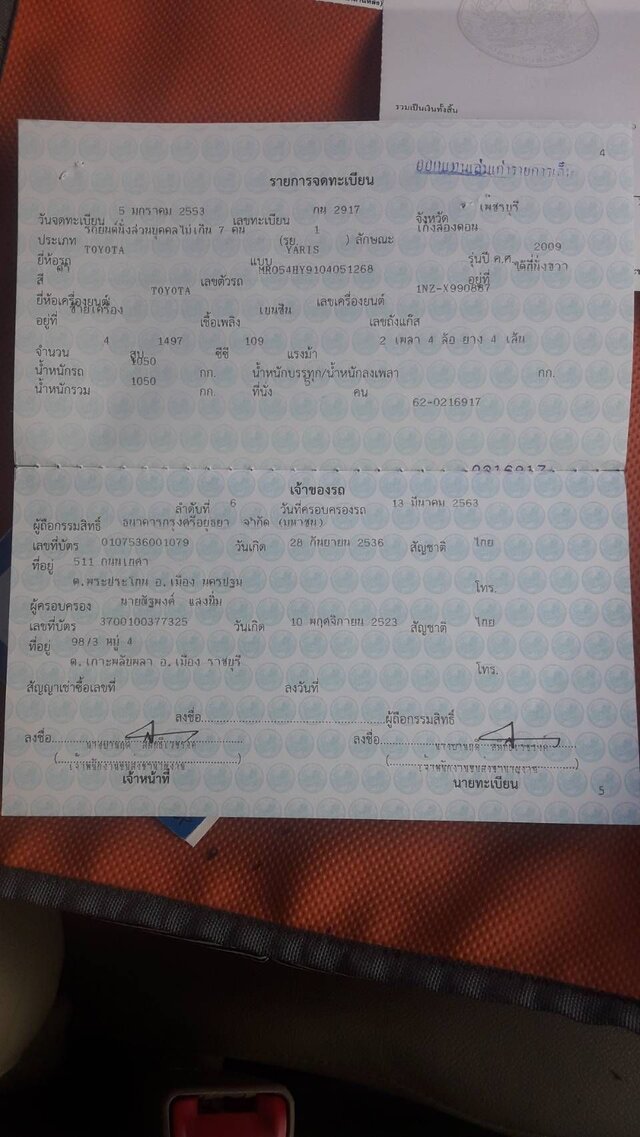 รวมเป็นเงินทั้งสิ้น
4
ออกแทนเล่มเก่ารายการเต็ม
รายการจดทะเบียน
วันจดทะเบียน 5 มกราคม 2553 เลขทะเบียน กน 2917 จังหวัด เพชรบุรี
ประเภท รถยนต์นั่งส่วนบุคคลไม่เกิน 7 คน (รย. 1 ) ลักษณะ เก๋งสองตอน
ยี่ห้อรถ TOYOTA แบบ YARIS รุ่นปี ค.ศ. 2009
สี ดำ เลขตัวรถ MR054HY9104051268 อยู่ที่ ใต้ที่นั่งขวา
ยี่ห้อเครื่องยนต์ TOYOTA เลขเครื่องยนต์ 1NZ-X990887
อยู่ที่ ซ้ายเครื่อง เชื้อเพลิง เบนซิน เลขถังแก๊ส
จำนวน 4 สูบ 1497 ซีซี 109 แรงม้า 2 เพลา 4 ล้อ ยาง 4 เส้น
น้ำหนักรถ 1050 กก. น้ำหนักบรรทุก/น้ำหนักลงเพลา กก.
น้ำหนักรวม 1050 กก. ที่นั่ง คน
62-0216917
0216917
เจ้าของรถ
ลำดับที่ 6 วันที่ครอบครองรถ 13 มีนาคม 2563
ผู้ถือกรรมสิทธิ์ ธนาคารกรุงศรีอยุธยา จำกัด (มหาชน)
เลขที่บัตร 0107536001079 วันเกิด 28 กันยายน 2536 สัญชาติ ไทย
ที่อยู่ 511 ถนนเทศา
ต.พระประโทน อ.เมือง นครปฐม โทร.
ผู้ครอบครอง
เลขที่บัตร 3700100377325 วันเกิด 10 พฤศจิกายน 2523 สัญชาติ ไทย
ที่อยู่ 98/3 หมู่ 4
ต.เกาะพลับพลา อ.เมือง ราชบุรี โทร.
สัญญาเช่าซื้อเลขที่ ลงวันที่
ลงชื่อ ผู้ถือกรรมสิทธิ์
ลงชื่อ ลงชื่อ
เจ้าหน้าที่ นายทะเบียน
5